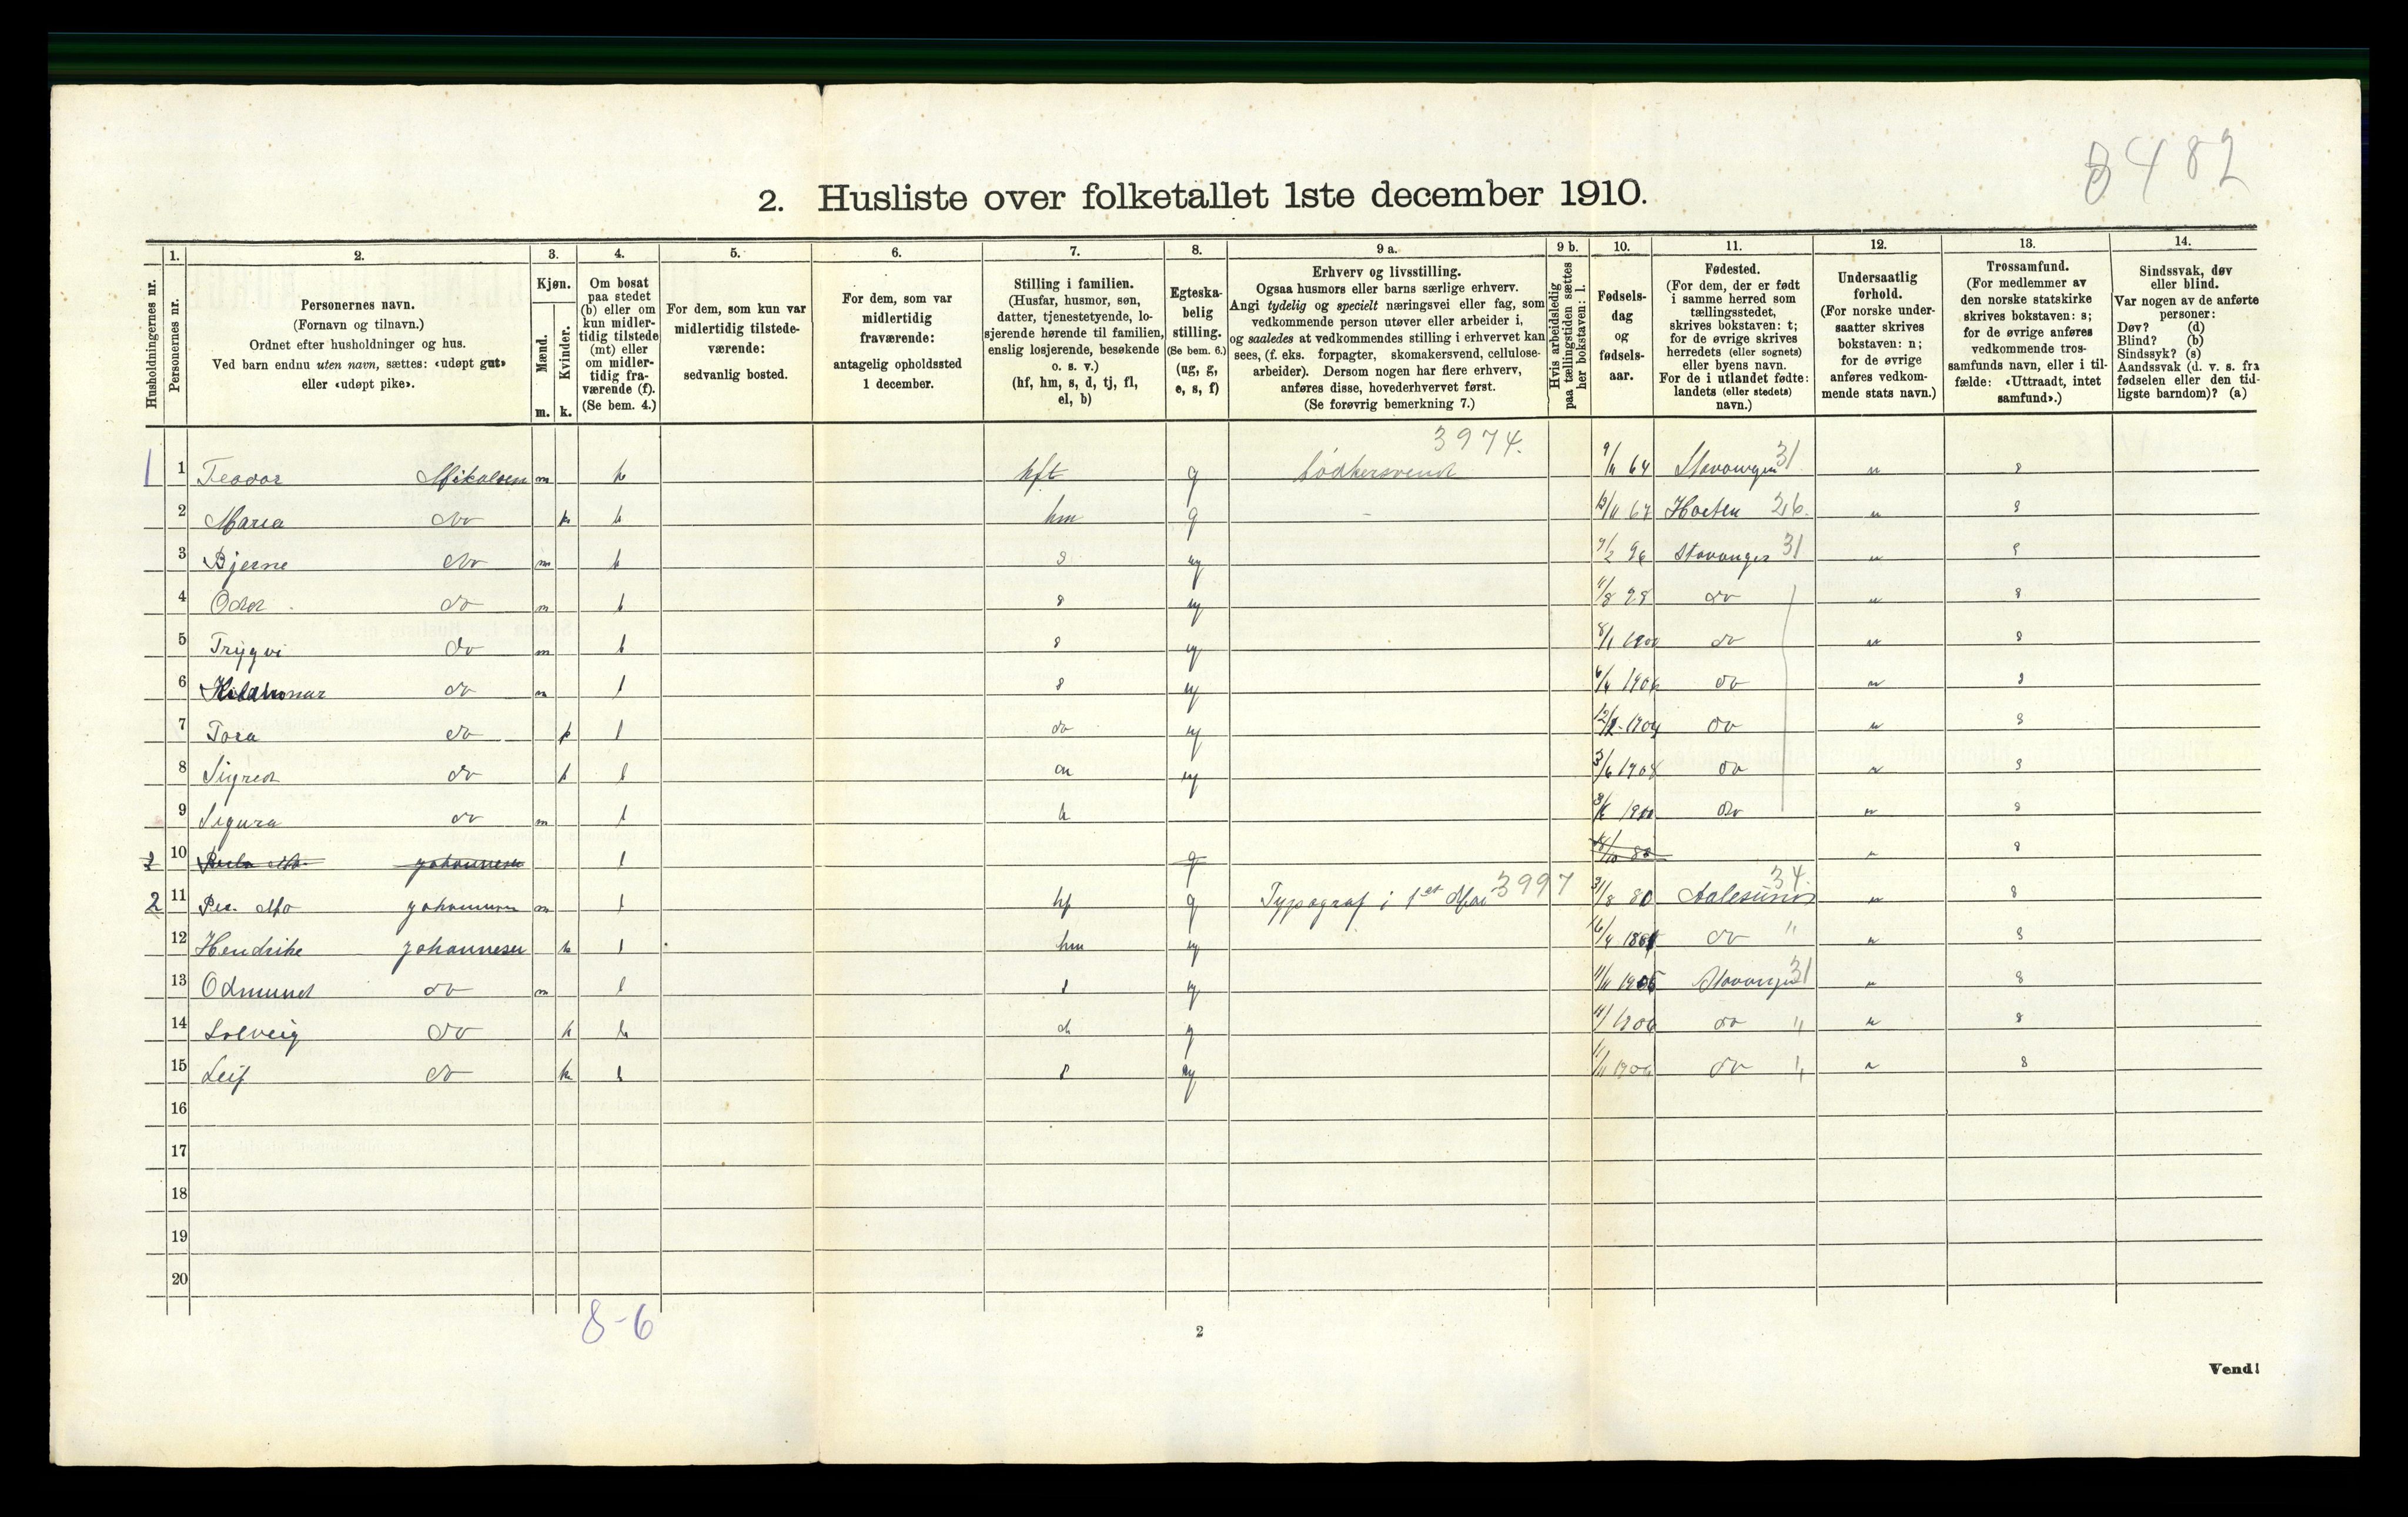 3482
2. Husliste over folketallet 1ste december 1910.
Husholdningernes nr.
1. Personernes nr.
2. Personernes navn.
(Fornavn og tilnavn.)
Ordnet efter husholdninger og hus.
Ved barn endnu uten navn, sættes: «udøpt gut»
eller «udøpt pike».
3. Kjøn.
Mænd. m.
Kvinder. k.
4. Om bosat
paa stedet
(b) eller om
kun midler-
tidig tilstede
(mt) eller
om midler-
tidig fra-
værende (f).
(Se bem. 4.)
5. For dem, som kun var
midlertidig tilstede-
værende:
sedvanlig bosted.
6. For dem, som var
midlertidig
fraværende:
antagelig opholdssted
1 december.
7. Stilling i familien.
(Husfar, husmor, søn,
datter, tjenestetyende, lo-
sjerende hørende til familien,
enslig losjerende, besøkende
o. s. v.)
(hf, hm, s, d, tj, fl,
el, b)
8. Egteska-
belig
stilling.
(Se bem. 6.)
(ug, g,
e, s, f)
9 a. Erhverv og livsstilling.
Ogsaa husmors eller barns særlige erhverv.
Angi tydelig og specielt næringsvei eller fag, som
vedkommende person utøver eller arbeider i,
og saaledes at vedkommendes stilling i erhvervet kan
sees, (f. eks. forpagter, skomakersvend, cellulose-
arbeider). Dersom nogen har flere erhverv,
anføres disse, hovederhvervet først.
(Se forøvrig bemerkning 7.)
9 b. Hvis arbeidsledig
paa tællingstiden sættes
her bokstaven: l.
10. Fødsels-
dag
og
fødsels-
aar.
11. Fødested.
(For dem, der er født
i samme herred som
tællingsstedet,
skrives bokstaven: t;
for de øvrige skrives
herredets (eller sognets)
eller byens navn.
For de i utlandet fødte:
landets (eller stedets)
navn.)
12. Undersaatlig
forhold.
(For norske under-
saatter skrives
bokstaven: n;
for de øvrige
anføres vedkom-
mende stats navn.)
13. Trossamfund.
(For medlemmer av
den norske statskirke
skrives bokstaven: s;
for de øvrige anføres
vedkommende tros-
samfunds navn, eller i til-
fælde: «Uttraadt, intet
samfund».)
14. Sindssvak, døv
eller blind.
Var nogen av de anførte
personer:
Døv? (d)
Blind? (b)
Sindssyk? (s)
Aandssvak (d. v. s. fra
fødselen eller den tid-
ligste barndom)? (a)
3974.
1 1 Teodor Mikalsen m b g Bødkersvend 9/11 64 Stavanger 31 n s
2 Maria do k b hm g 67 26 n s
3 Bjerne do m b s ug 9/2 96 Stavanger 31 n s
4 Odd do m b s ug 98 do n s
5 Trygvi do m b s ug 8/1 1900 do n s
6 do m b s ug do n s
7 Tora do k b do ug do n s
8 Sigred do k b ug do n s
9 Sigurd do m b do n s
2 10 Johannesen b g n s
2 11 Johannesen m b hf g Typograf i 1st Mai 3997 31/8 80 Aalesund 34. n s
12 Hendrike Johannesen k b hm do " n s
13 Odmund do m b s ug Stavanger 31 n s
14 Solveig do k b d do " n s
15 Leif do k b s ug do " n s
16
17
18
19
20
8-6
2
Vend!